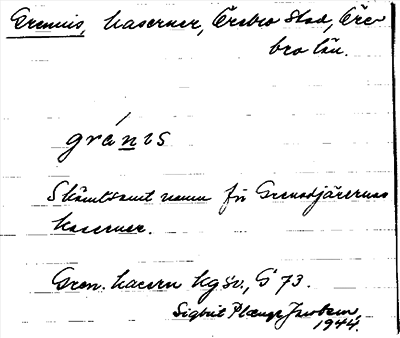 Grenis, kaserner, Örebro stad, Öre-
bro län.
gránis
Skämtsamt namn för Grenadjärernas
kaserner.
Gren. kasern kg sv., G 73.
Sigbrit Plænge Jacobson,
1944.